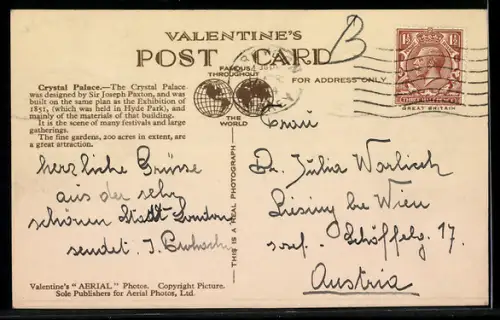 VALENTINE'S
POST CARD
FAMOUS
THROUGHOUT
THE
WORLD
FOR ADDRESS ONLY
B
1½ 1½
THREE HALFPENCE
GREAT BRITAIN
Crystal Palace.—The Crystal Palace
was designed by Sir Joseph Paxton, and was
built on the same plan as the Exhibition of
1851, (which was held in Hyde Park), and
mainly of the materials of that building.
It is the scene of many festivals and large
gatherings.
The fine gardens, 200 acres in extent, are
a great attraction.
herzliche Grüsse
aus der sehr
schönen Stadt London
sendet. J.
THIS IS A REAL PHOTOGRAPH
Frau
Dr. Julia
Liesing bei Wien
Josef. Schöffelg. 17.
Austria
Valentine's "AERIAL" Photos. Copyright Picture.
Sole Publishers for Aerial Photos, Ltd.